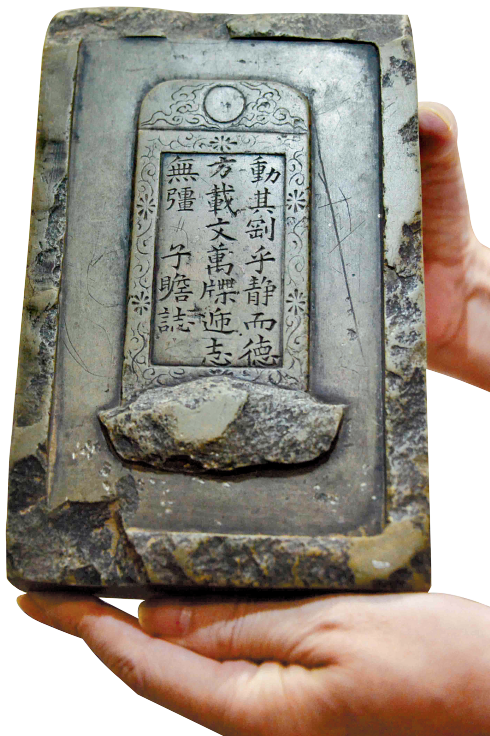 動其剛乎静而德
方載文萬牒迊志
無彊 子瞻誌